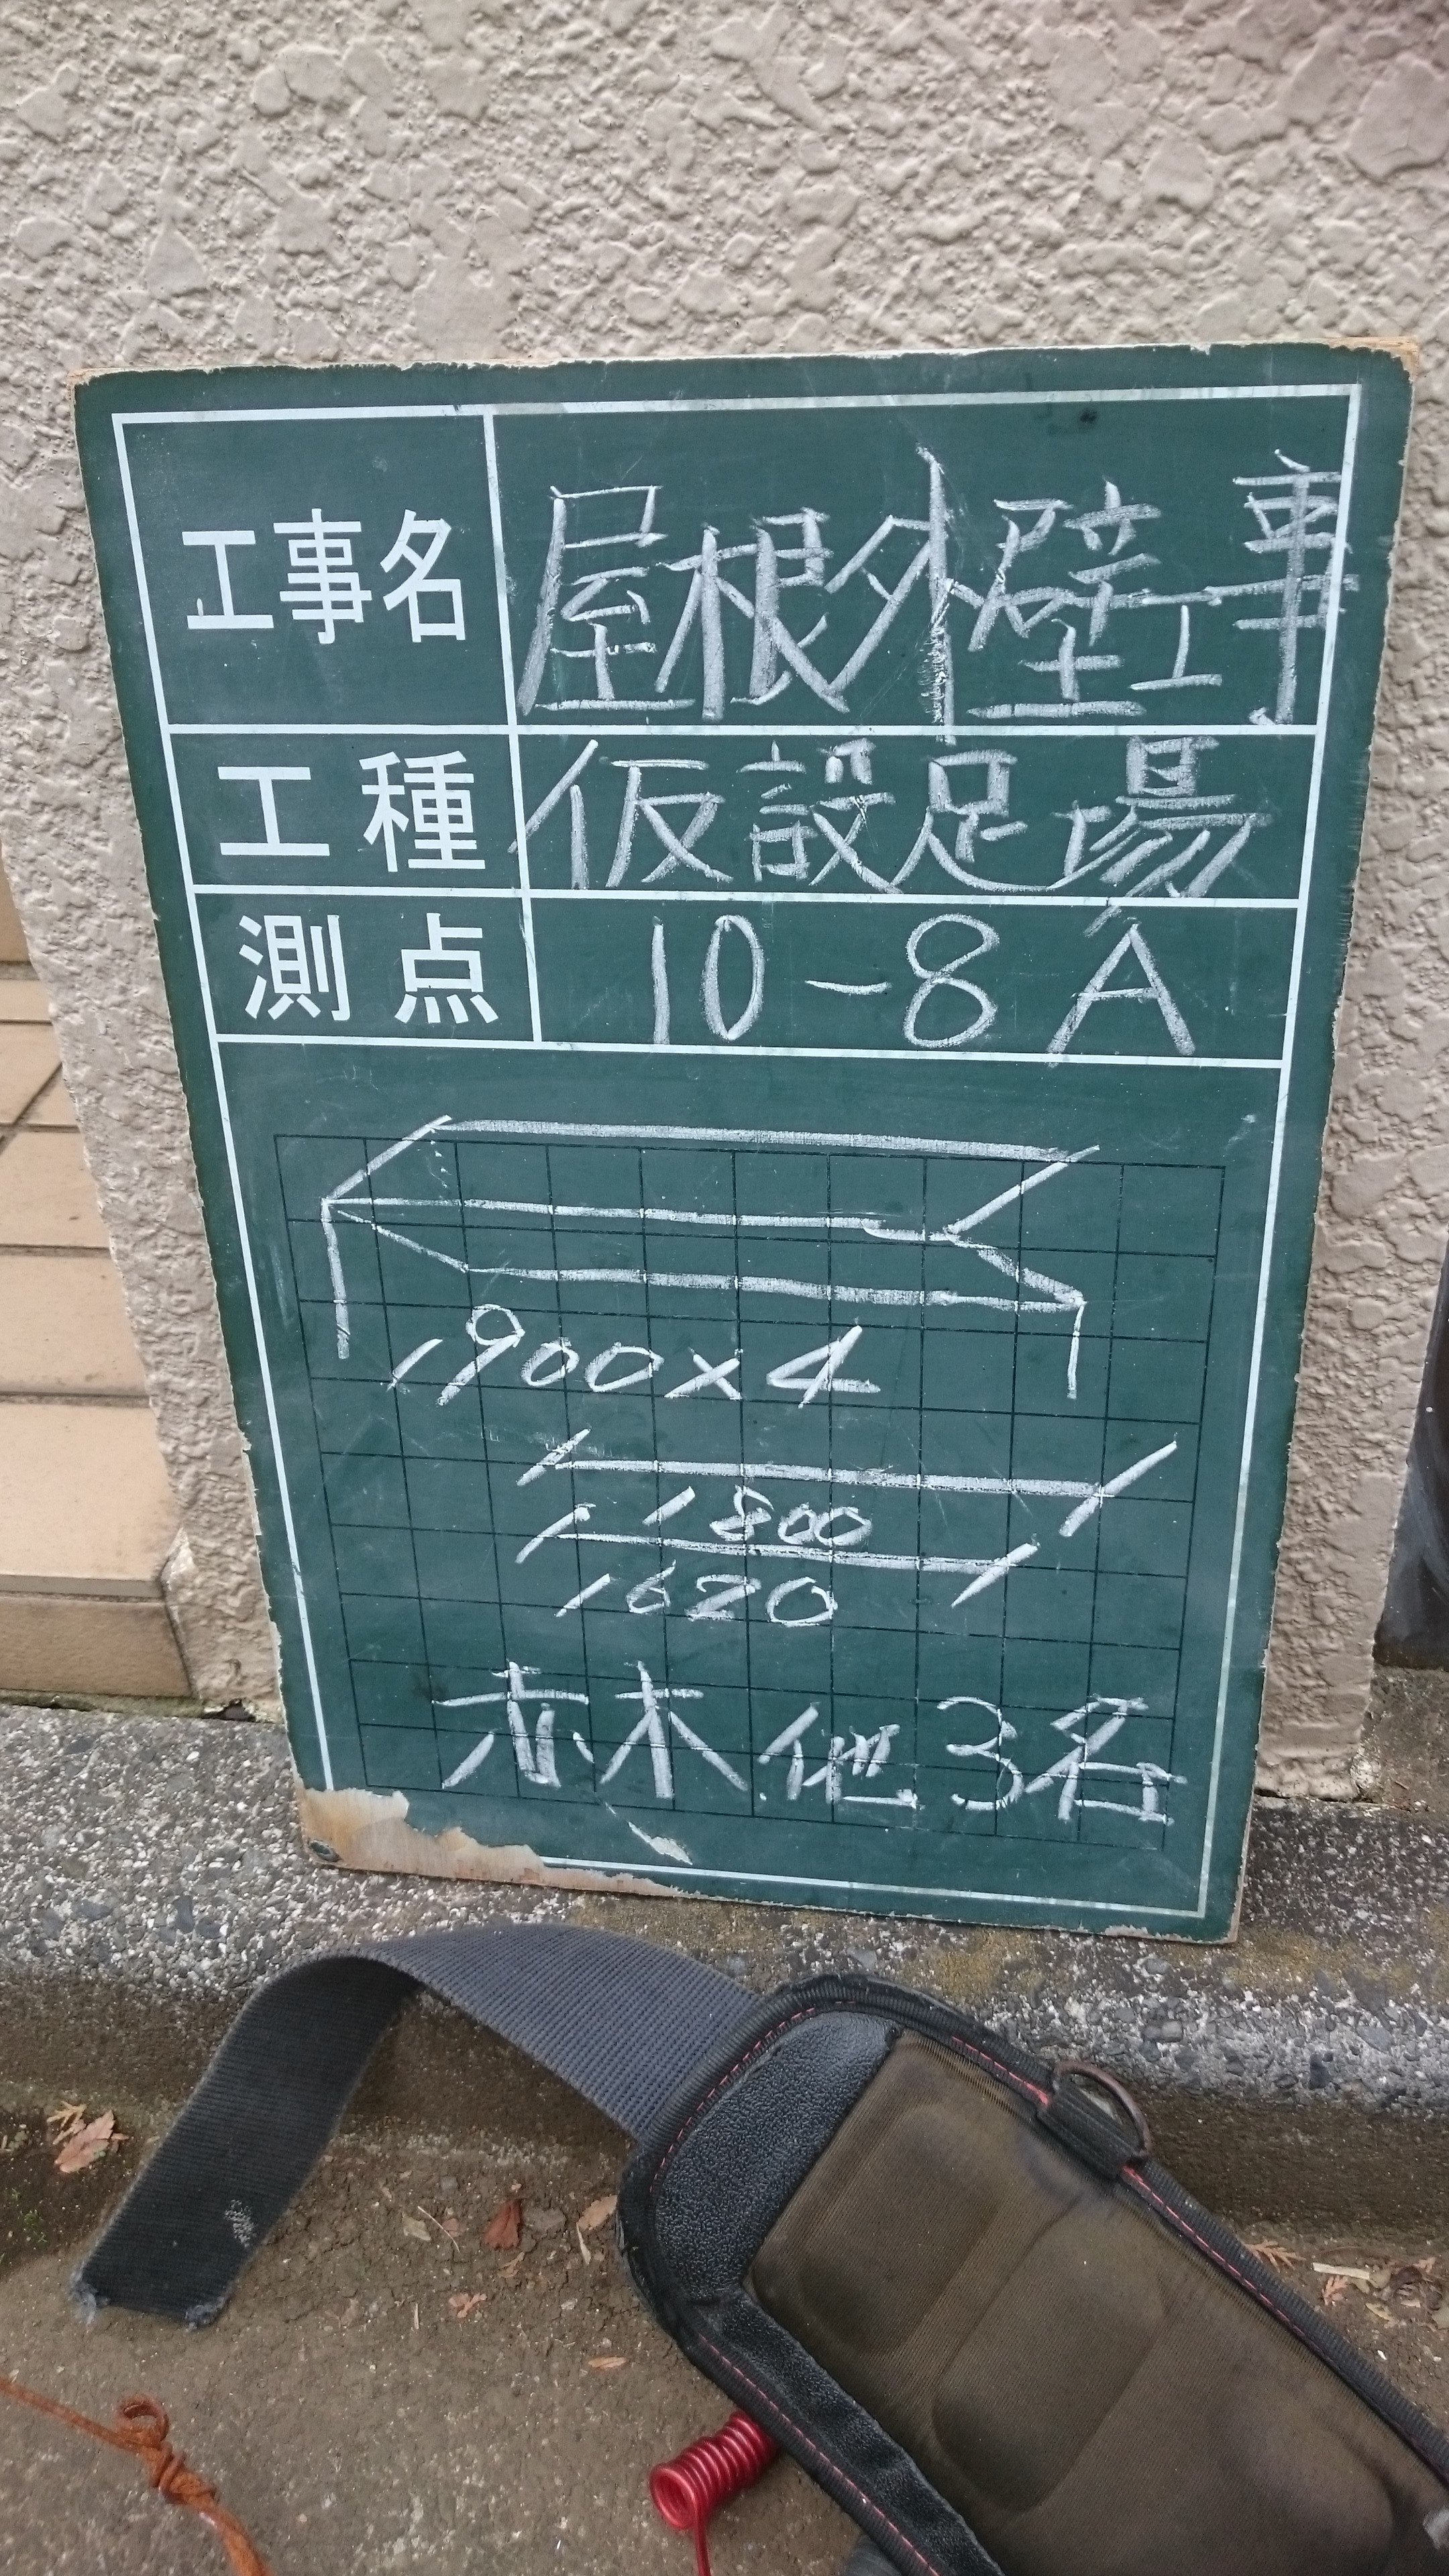 工事名 屋根外壁工事
工種 仮設足場
測点 10-8A
1900×4
1800
1620
赤木 他3名